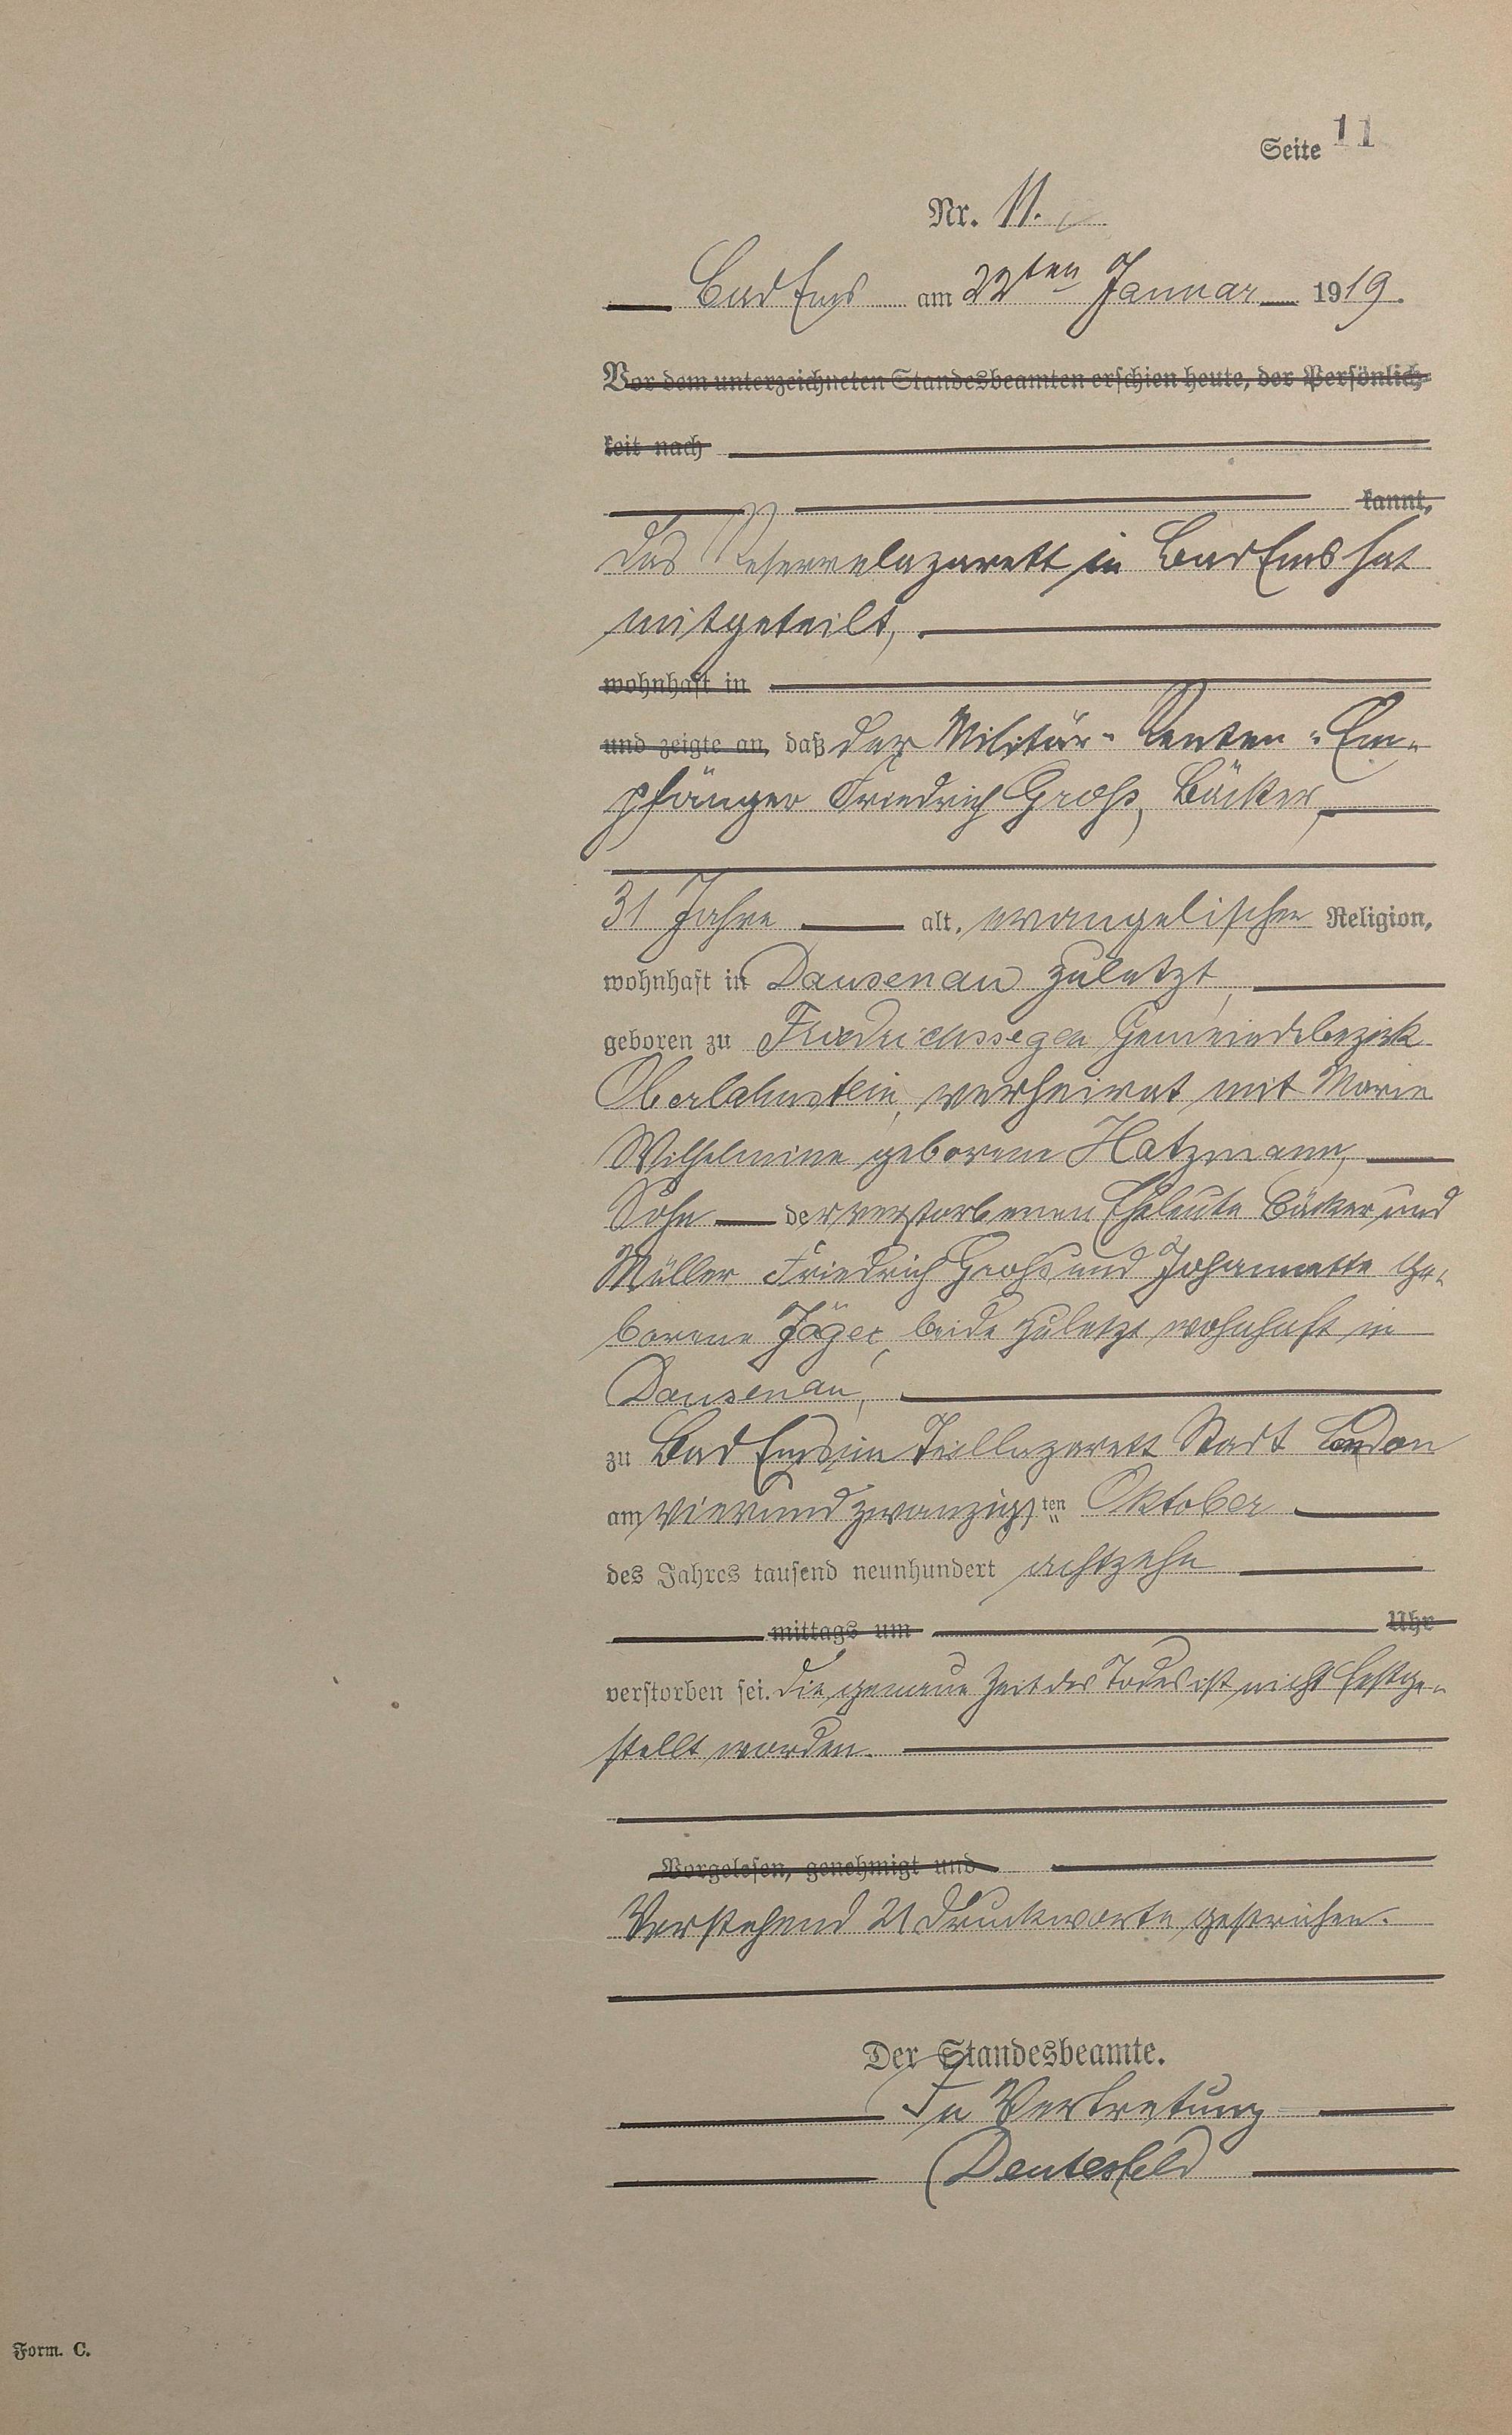 Seite 11
Nr. 11.
Bad Ems am 22ten Januar 1919.
Vor dem unterzeichneten Standesbeamten erschien heute, der Persönlich-
keit nach
kannt,
Das Reservelazarett in Bad Ems hat
mitgeteilt,
wohnhaft in
und zeigte an, daß der Militär-Renten-Em-
pfänger Friedrich Groß, Bäcker,
31 Jahre alt, evangelischer Religion,
wohnhaft in Dausenau zuletzt,
geboren zu Friedrichssegen Gemeindebezirk
Oberlahnstein, verheirat mit Marie
Wilhelmine geborene Hatzmann,
Sohn der verstorbenen Eheleute Bäcker und
Müller Friedrich Groß und Johannette ge-
borene Jäger, beide zuletzt wohnhaft in
Dausenau,
zu Bad Ems im Teillazarett Stadt London
am vierundzwanzigsten Oktober
des Jahres tausend neunhundert achtzehn
mittags um Uhr
verstorben sei. Die genaue Zeit des Todes ist nicht festge-
stellt worden.
Vorgelesen, genehmigt und
Vorstehend 21 Druckworte gestrichen.
Der Standesbeamte.
In Vertretung
Deutesfeld
Form. C.